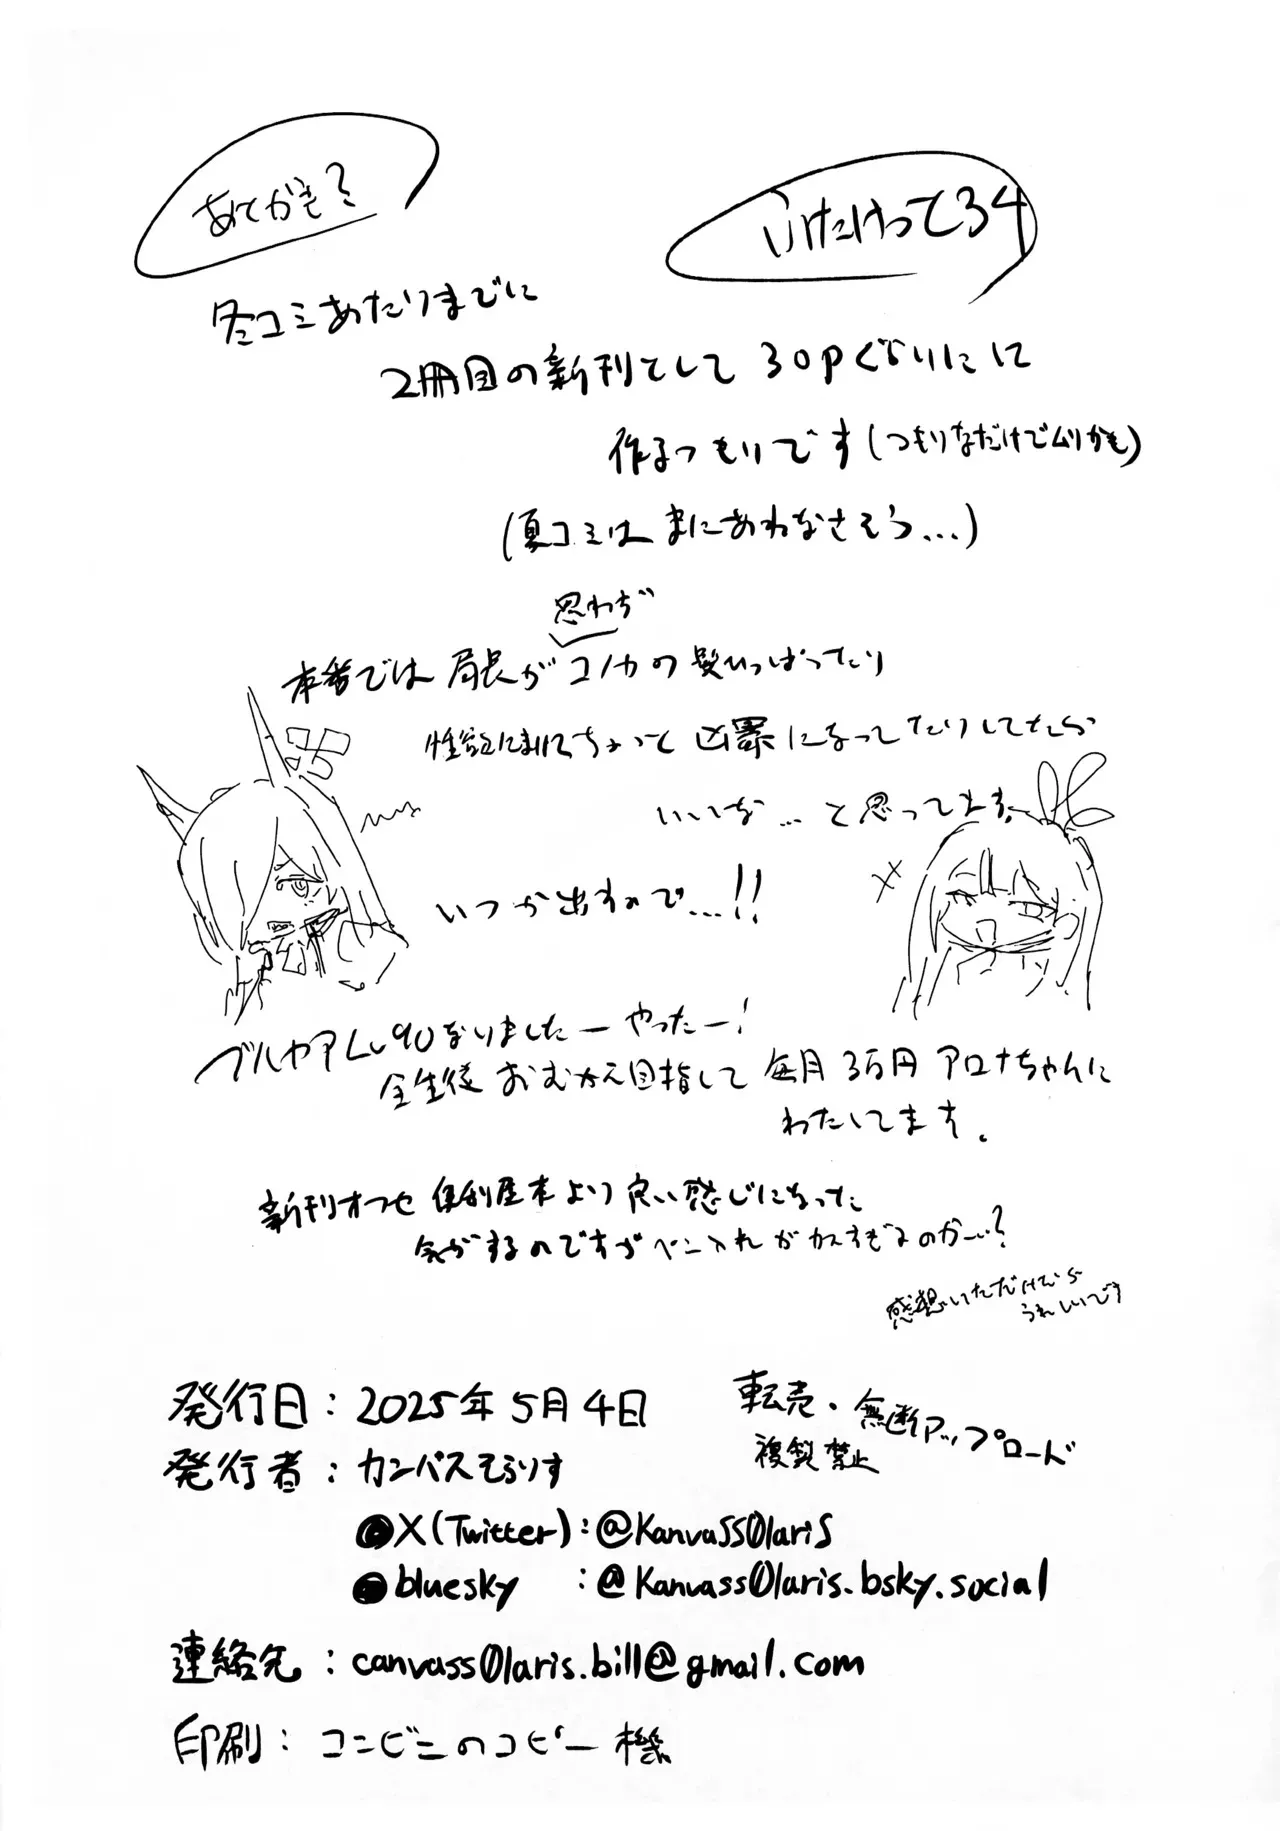 あてかも?
いけたけって34
冬コミあたりまでに
2冊目の新刊として30Pぐらいにして
作るつもりです(つもりなだけでムリかも)
(夏コミはまにあわなさそう…)
思わず
本番では局長がコノカの髪ひっぱったり
性欲にまけてちょっと凶暴になってたりしてたら
いいな…と思ってます
いつか出すので…!!
ブルカアLv90なりましたーやったー!
全生徒おむかえ目指して毎月3万円アロナちゃんに
わたしてます。
新刊オフセ便利屋本より良い感じになった
気がするのですがペン入れがカスすぎるのかーい?
感想いただけたら
うれしいです
発行日:2025年5月4日
転売・無断アップロード
複製禁止
発行者:カンバスそらりす
●X(Twitter):@KanvaSS0lariS
●bluesky :@Kanvass0laris.bsky.social
連絡先:canvass0laris.bill@gmail.com
印刷:コンビニのコピー機